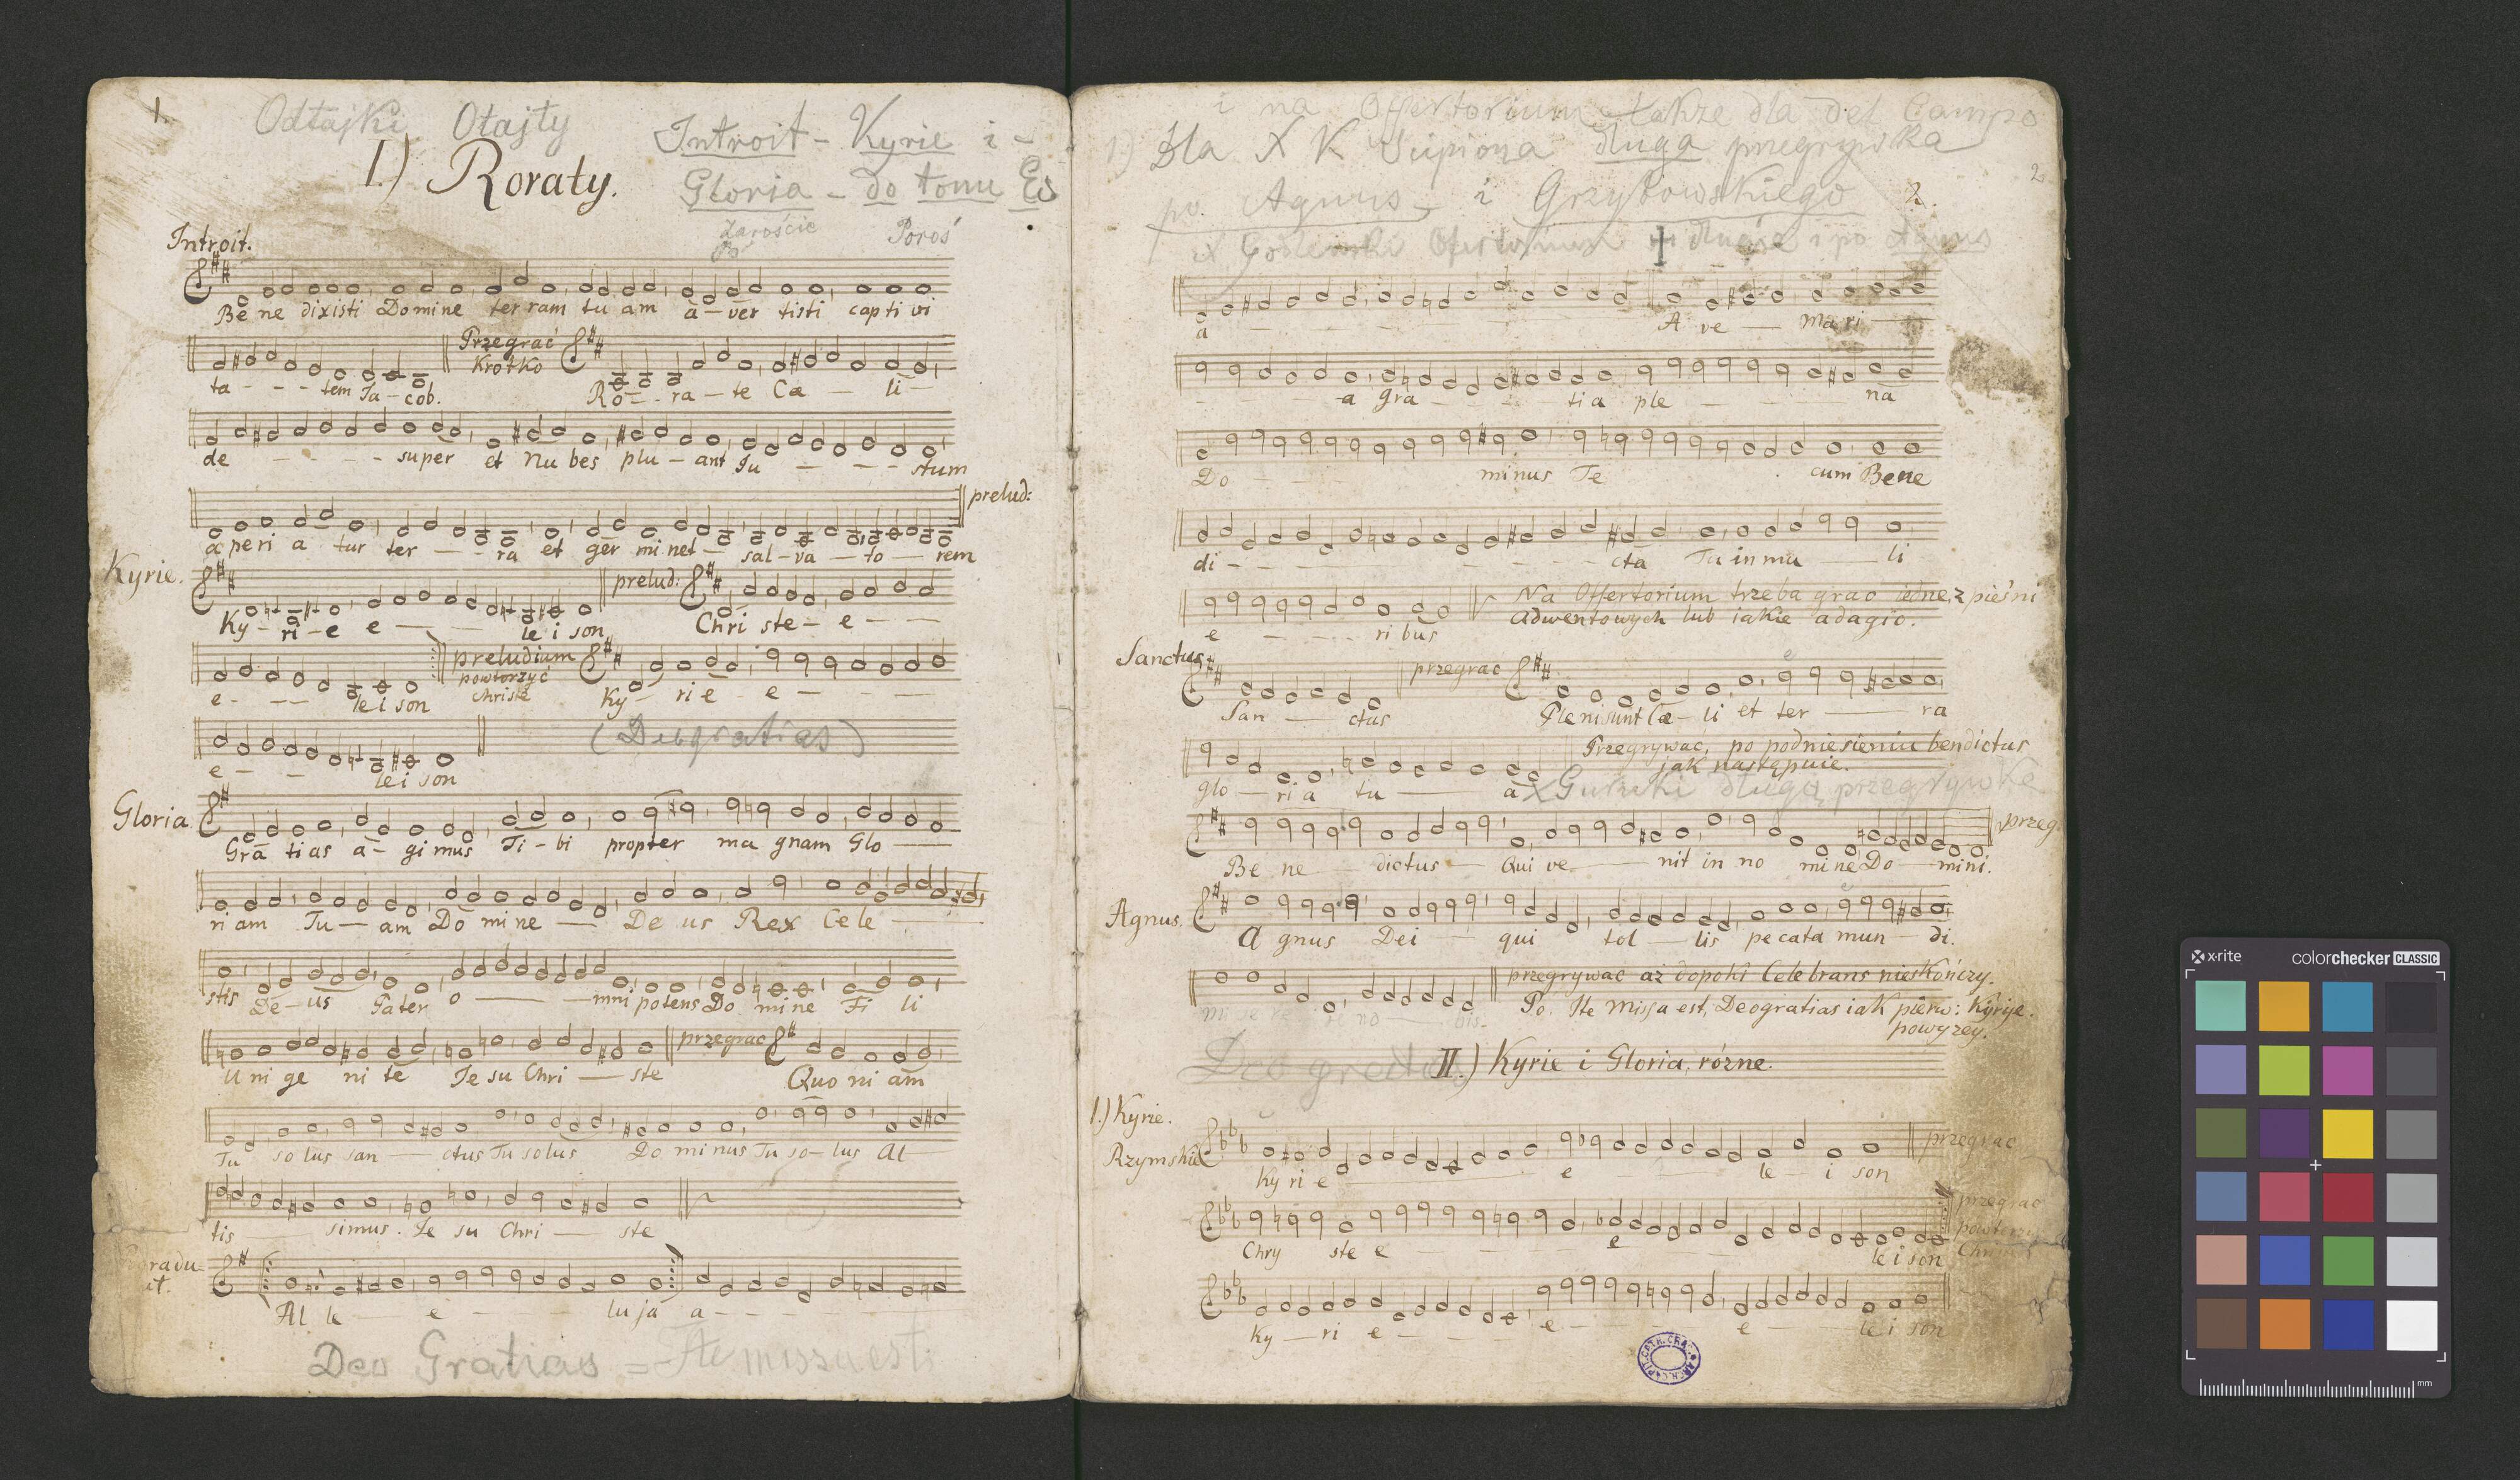 1.
Odtajki Otajty
Introit - Kyrie i -
I.) Roraty.
Gloria - do tonu Es
Introit.
Be ne dixisti Domine ter ram tu am a - ver tisti capti vi
Przegrać
Krotko
ta - - - tem Ja - cob. Ro - - ra - te Cæ - li -
de - - - - super et Nu bes plu - ant Ju - - - stum
prelud:
a peri a tur ter - - - ra et ger mi net - sal - va - to - rem
Kyrie.
prelud:
Ky - ri - e e - - le i son Chri ste - e - - -
preludium
powtorzyć
Christe
e - - - le i son Ky - ri e - e - - -
(Deogratias)
e - - le i son
Gloria
Gra ti as a - gi mus Ti - bi propter ma gnam Glo -
ri am Tu - am Do mi ne - De us Rex Cele -
stis De - us Pater o - mni potens Do mi ne Fi li
przegrac
U ni ge ni te Je su Chri - ste Quo ni am
Tu so lus san - ctus Tu solus Do mi nus Tu so - lus Al -
tis - simus. Je su Chri - ste
Al le - e - - luja a - - -
Deo Gratias = Ite missa est
i na Offertorium także dla del Campo
1.) Dla X K długa przegrywka
2
po. Agnus - i Grzybowskiego
2.
a - - - A ve - Ma ri -
- - - a gra - - - ti a ple - - - na
Do - - - minus Te cum Bene
di - - - - - - cta Tu in mu - li
Na Offertorium trzeba grac iedne, z pieśni
Adwentowych lub iakie adagio.
e - - - - ri bus
Sanctus.
przegrac
San - ctus Pleni sunt Cæ - li et ter - ra
Przegrywać, po podniesieniu bendictus
jak następuie.
glo - ri a tu - a
długą przegrywke
przeg.
Be ne - dictus - Qui ve - nit in no mi ne Do - mini.
Agnus.
A gnus Dei - qui tol - lis pecata mun - di.
przegrywac aż dopoki Celebrans nieskończy.
Po. Ite Missa est, Deogratias iak pierw: Kyrye.
powyzey.
mi se re re no - bis.
Deo gratias
II.) Kyrie i Gloria, rózne.
1.) Kyrie.
Rzymskie
przegrac
Ky ri e - e - - le - i son
przegrac
powtorzyc
Chry ste e - - - e le i son
Ky - ri e - - - e - - - e - - le i son
x-rite
colorchecker CLASSIC
mm